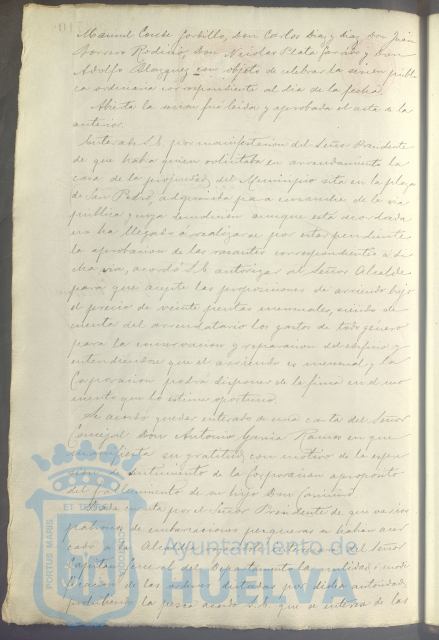 Manuel Conde Gordillo, Don Carlos Diaz y diaz, Don Juan
Borrero Rodino, Don Nicolas Plata y Don
Adolfo Blazquez con objeto de celebrar la sesion públi
ca ordinaria correspondiente al dia de la fecha.
Abierta la sesion fué leida y aprobada el acta de la
anterior.
Enterado S.E. por manifestacion del Señor Presidente
de que habia quien solicitaba en arrendamiento la
casa de la propiedad del Municipio sita en la plaza
de San Pedro, adquirida para ensanche de la via
publica y cuya demolicion aunque está acordada
no ha llegado á realizarse por estar pendiente
la aprobacion de las rasantes correspondientes á di
cha via, acordó S.E. autorizar al Señor Alcalde
para que acepte las proposiciones de arriendo bajo
el precio de veinte pesetas mensuales, siendo de
cuenta del arrendatario los gastos de todo género
para la conservacion y reparacion del edificio y
entendiendose que el arriendo es mensual y la
Corporacion podrá disponer de la finca en el mo
mento que lo estime oportuno.
Se acordó quedar enterado de una carta del Señor
Concejal Don Antonio Garcia Ramos en que
manifiesta su gratitud con motivo de la expre
sion de sentimiento de la Corporacion aproposito
del fallecimiento de su hijo Don
Dada cuenta por el Señor Presidente de que varios
patronos de embarcaciones pesqueras se habian acer
cado á la Alcaldia del Señor
Capitan General del Departamento la nulidad ó modi
ficacion de las ordenes dictadas por dicha autoridad
prohibiendo la pesca acordó S.E. que se interese de las
PORTUS MARIS
ET TERRAE
CUSTODIA
Ayuntamiento de
HUELVA